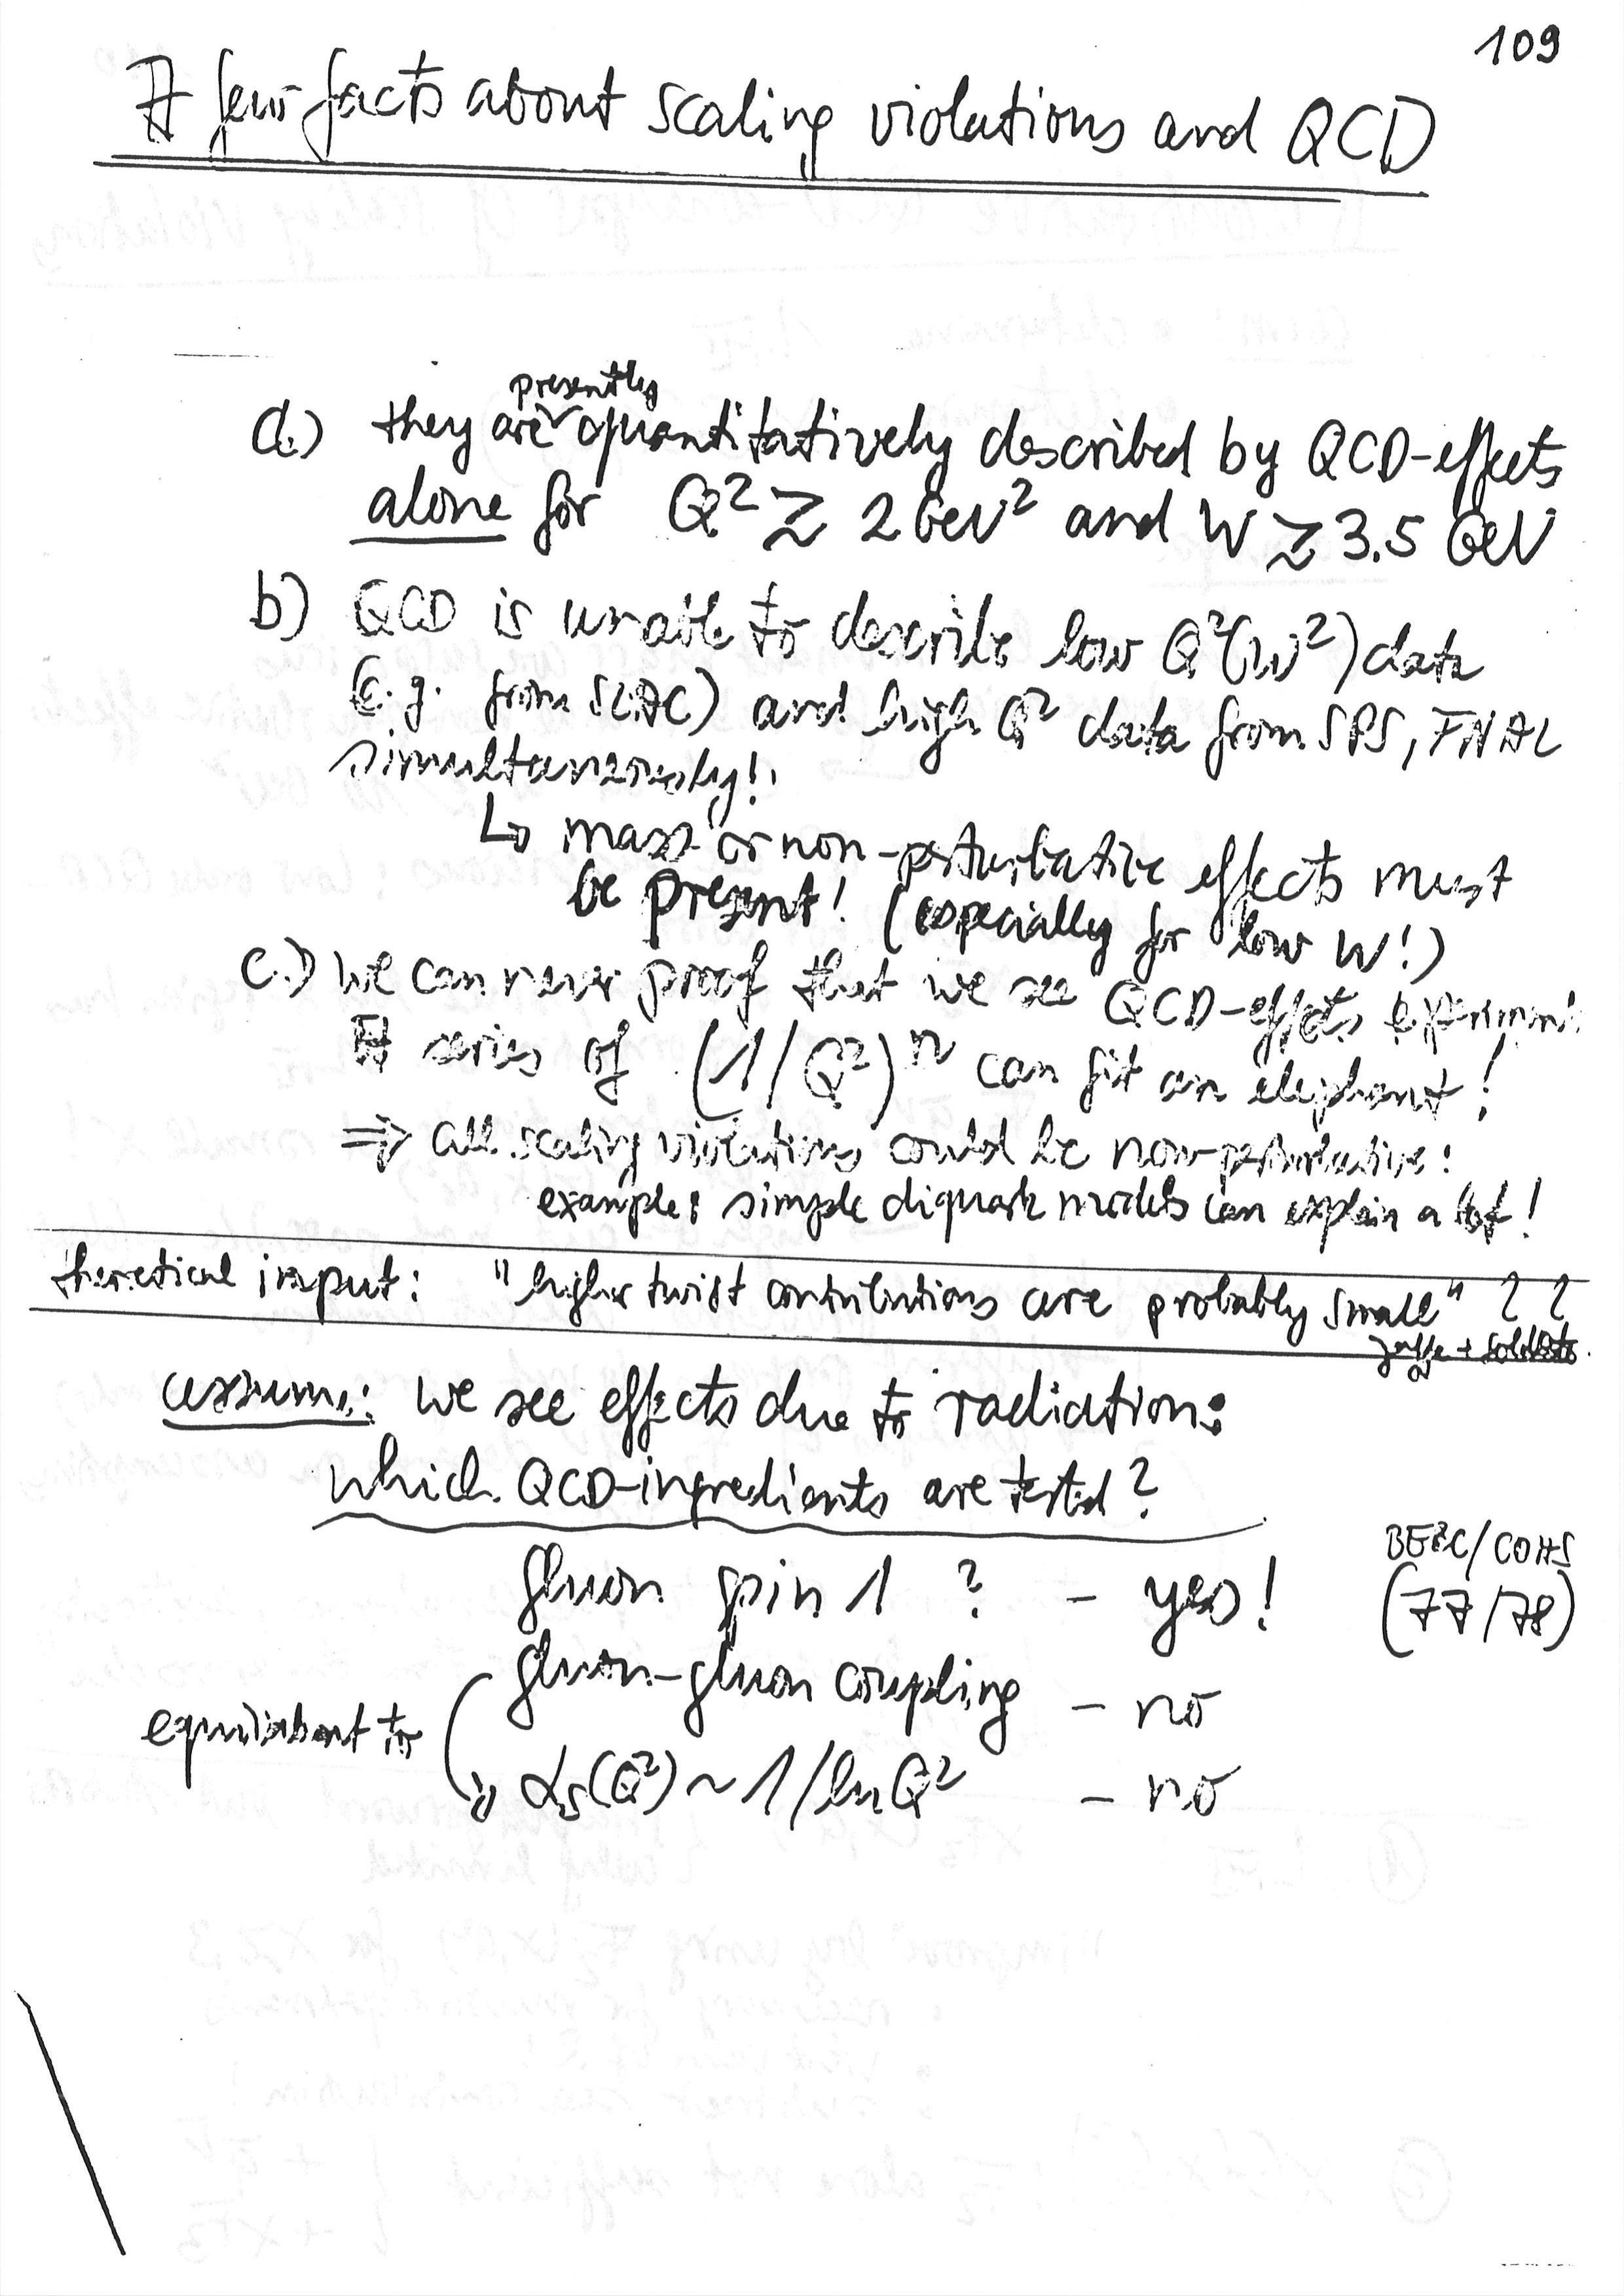 109
A few facts about scaling violations and QCD
presently
a.) they are quantitatively described by QCD-effects
alone for Q² ≳ 2 GeV² and W ≳ 3.5 GeV
b) QCD is unable to describe low Q²(W²) data
(e.g. from SLAC) and high Q² data from SPS, FNAL
simultaneously!
↳ mass- or non-perturbative effects must
be present! (especially for low W!)
c.) We can never proof that we see QCD-effects
A series of (1/Q²)ⁿ can fit an elephant!
⇒ all scaling violations could be non-perturbative:
example: simple diquark models can explain a lot!
theoretical input: "higher twist contributions are probably small" ? ?
Jaffe + Soldate
assume: We see effects due to radiation:
which QCD-ingredients are tested?
BEBC/CDHS
gluon spin 1 ? - yes! (77/78)
gluon-gluon coupling - no
equivalent to
αs(Q²) ~ 1/ln Q² - no